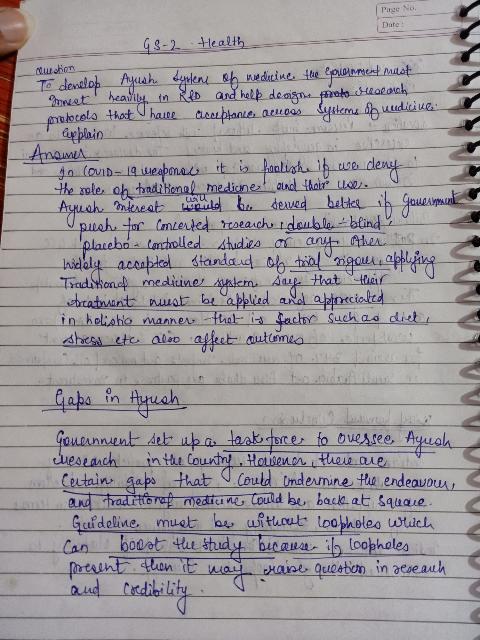 Page No.
Date:
GS-2 Health
Question
To develop Ayush system of medicine the government must
invest heavily in R&D and help design research
protocols that have acceptance across systems of medicine.
Explain
Answer
In COVID-19 weapons it is foolish if we deny
the role of traditional medicine and their use.
Ayush interest will be served better if Government
push for concerted research, double-blind,
placebo-controlled studies or any other
widely accepted standard of trial rigour applying
Traditional medicine system say that their
treatment must be applied and appreciated
in holistic manner that is factor such as diet,
stress etc also affect outcomes
Gaps in Ayush
Government set up a task force to oversee Ayush
research in the country. However, there are
certain gaps that could undermine the endeavour,
and traditional medicine could be back at square.
Guideline must be without loopholes which
can boost the study because if loopholes
present then it may raise question in reseach
and credibility.